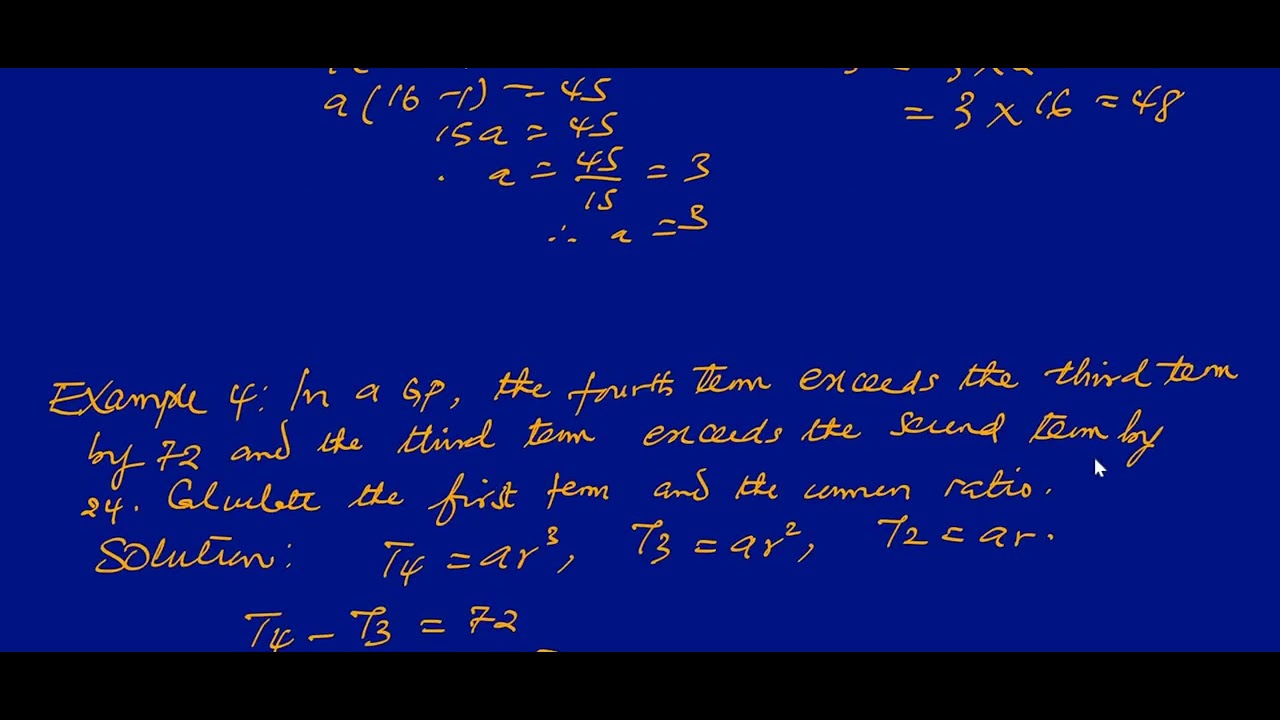 a(16 - 1) = 45
= 3 × 16 = 48
15a = 45
a = 45/15 = 3
∴ a = 3
Example 4: In a GP, the fourth term exceeds the third term
by 72 and the third term exceeds the second term by
24. Calculate the first term and the common ratio.
Solution: T4 = ar³, T3 = ar², T2 = ar.
T4 - T3 = 72